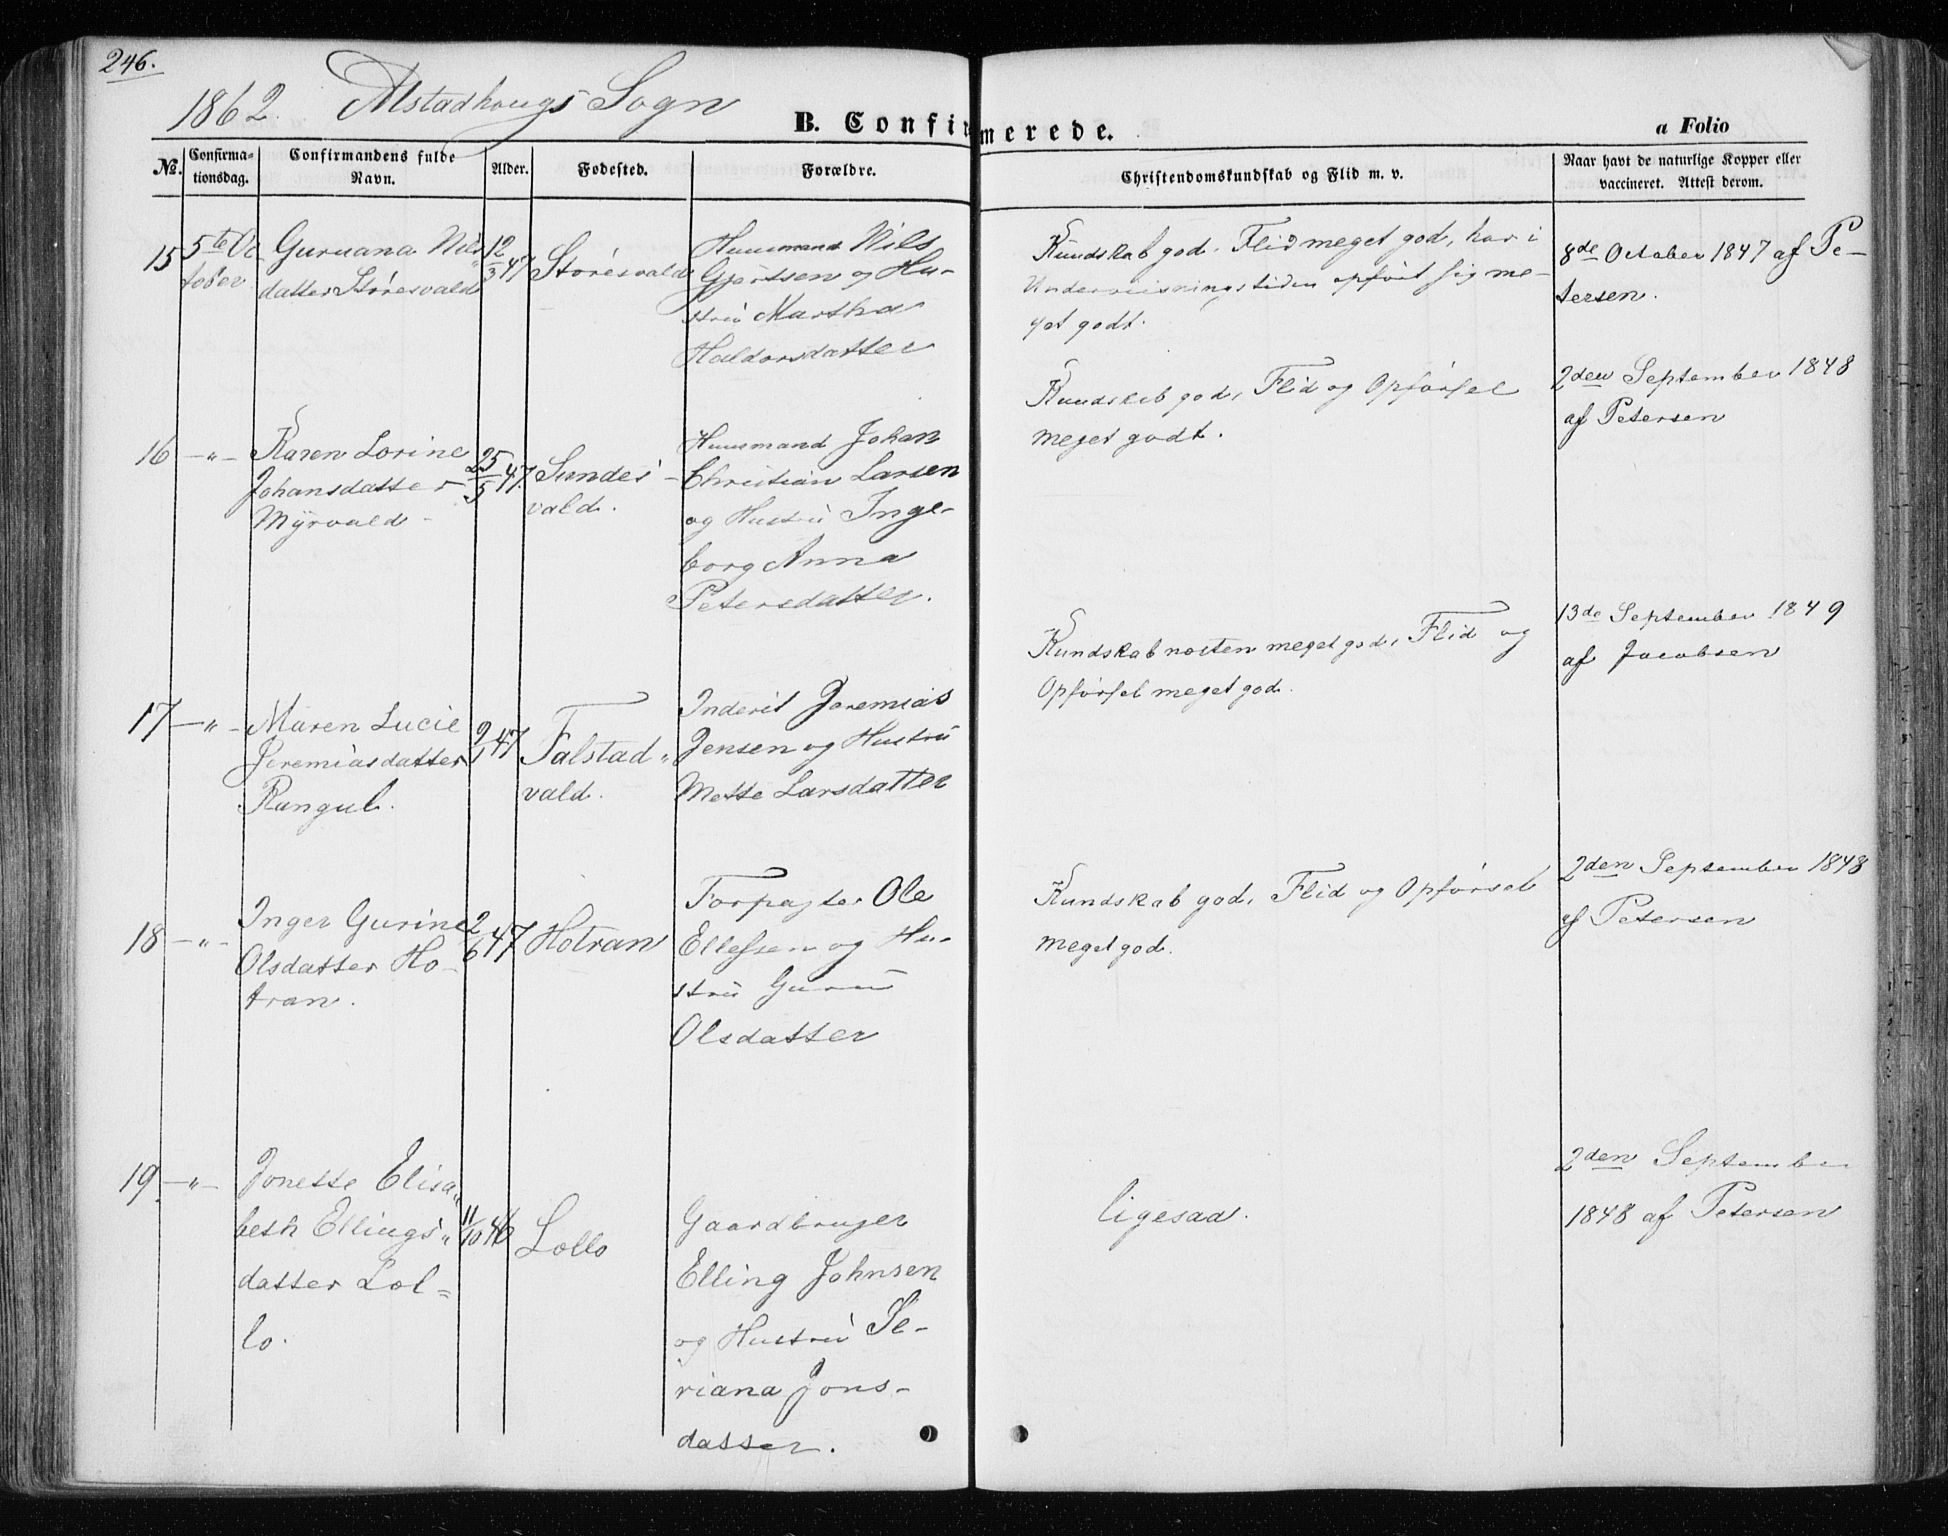 246.
1862. Alstadhougs Sogn
B. Confirmerede.
a Folio
No.
Confirmationsdag.
Confirmandens fulde Navn.
Alder.
Fødested.
Forældre.
Christendomskundskab og Flid m. v.
Naar havt de naturlige Kopper eller vaccineret. Attest derom.
15 5te Oc-
tober
Guruana Nils
datter Störesvald
12/3 47
Störesvald
Huusmand Nils
Gjertsen og Hu-
strü Martha
Haldorsdatter
Kundskab god. Flid meget god, har i
Underviisningstiden opført sig me-
get godt.
8de October 1847 af Pe-
tersen.
16 -"-
Karen Lorine
Johansdatter
Myrvald
25/5 47.
Sundes-
vald.
Huusmand Johan
Christian Larsen
og Hustrü Inge-
borg Anna
Petersdatter.
Kundskab god, Flid og Opførsel
meget godt.
2den September 1848
af Petersen
17 -"-
Maren Lucie
Jeremiasdatter
Rungul.
9/1 47
Falstad-
vald.
Inderst Jeremias
Jensen og Hustrü
Mette Larsdatter
Kundskab næsten meget god, Flid og
Opførsel meget god.
13de September 1849
af Jacobsen
18 -"-
Inger Gurine
Olsdatter Ho-
tran.
2/6 47
Hotran
Forpagter Ole
Ellefsen og Hu-
strü
Olsdatter
Kundskab god, Flid og Opførsel
meget god.
2den September 1848
af Petersen
19. -"-
Jonette Elisa-
beth Ellings-
datter Lol-
lo.
11/10 46
Lollo
Gaardbruger
Elling Johnsen
og Hustrü Se-
riana Jons-
datter.
ligesaa.
2den September
1848 af Petersen